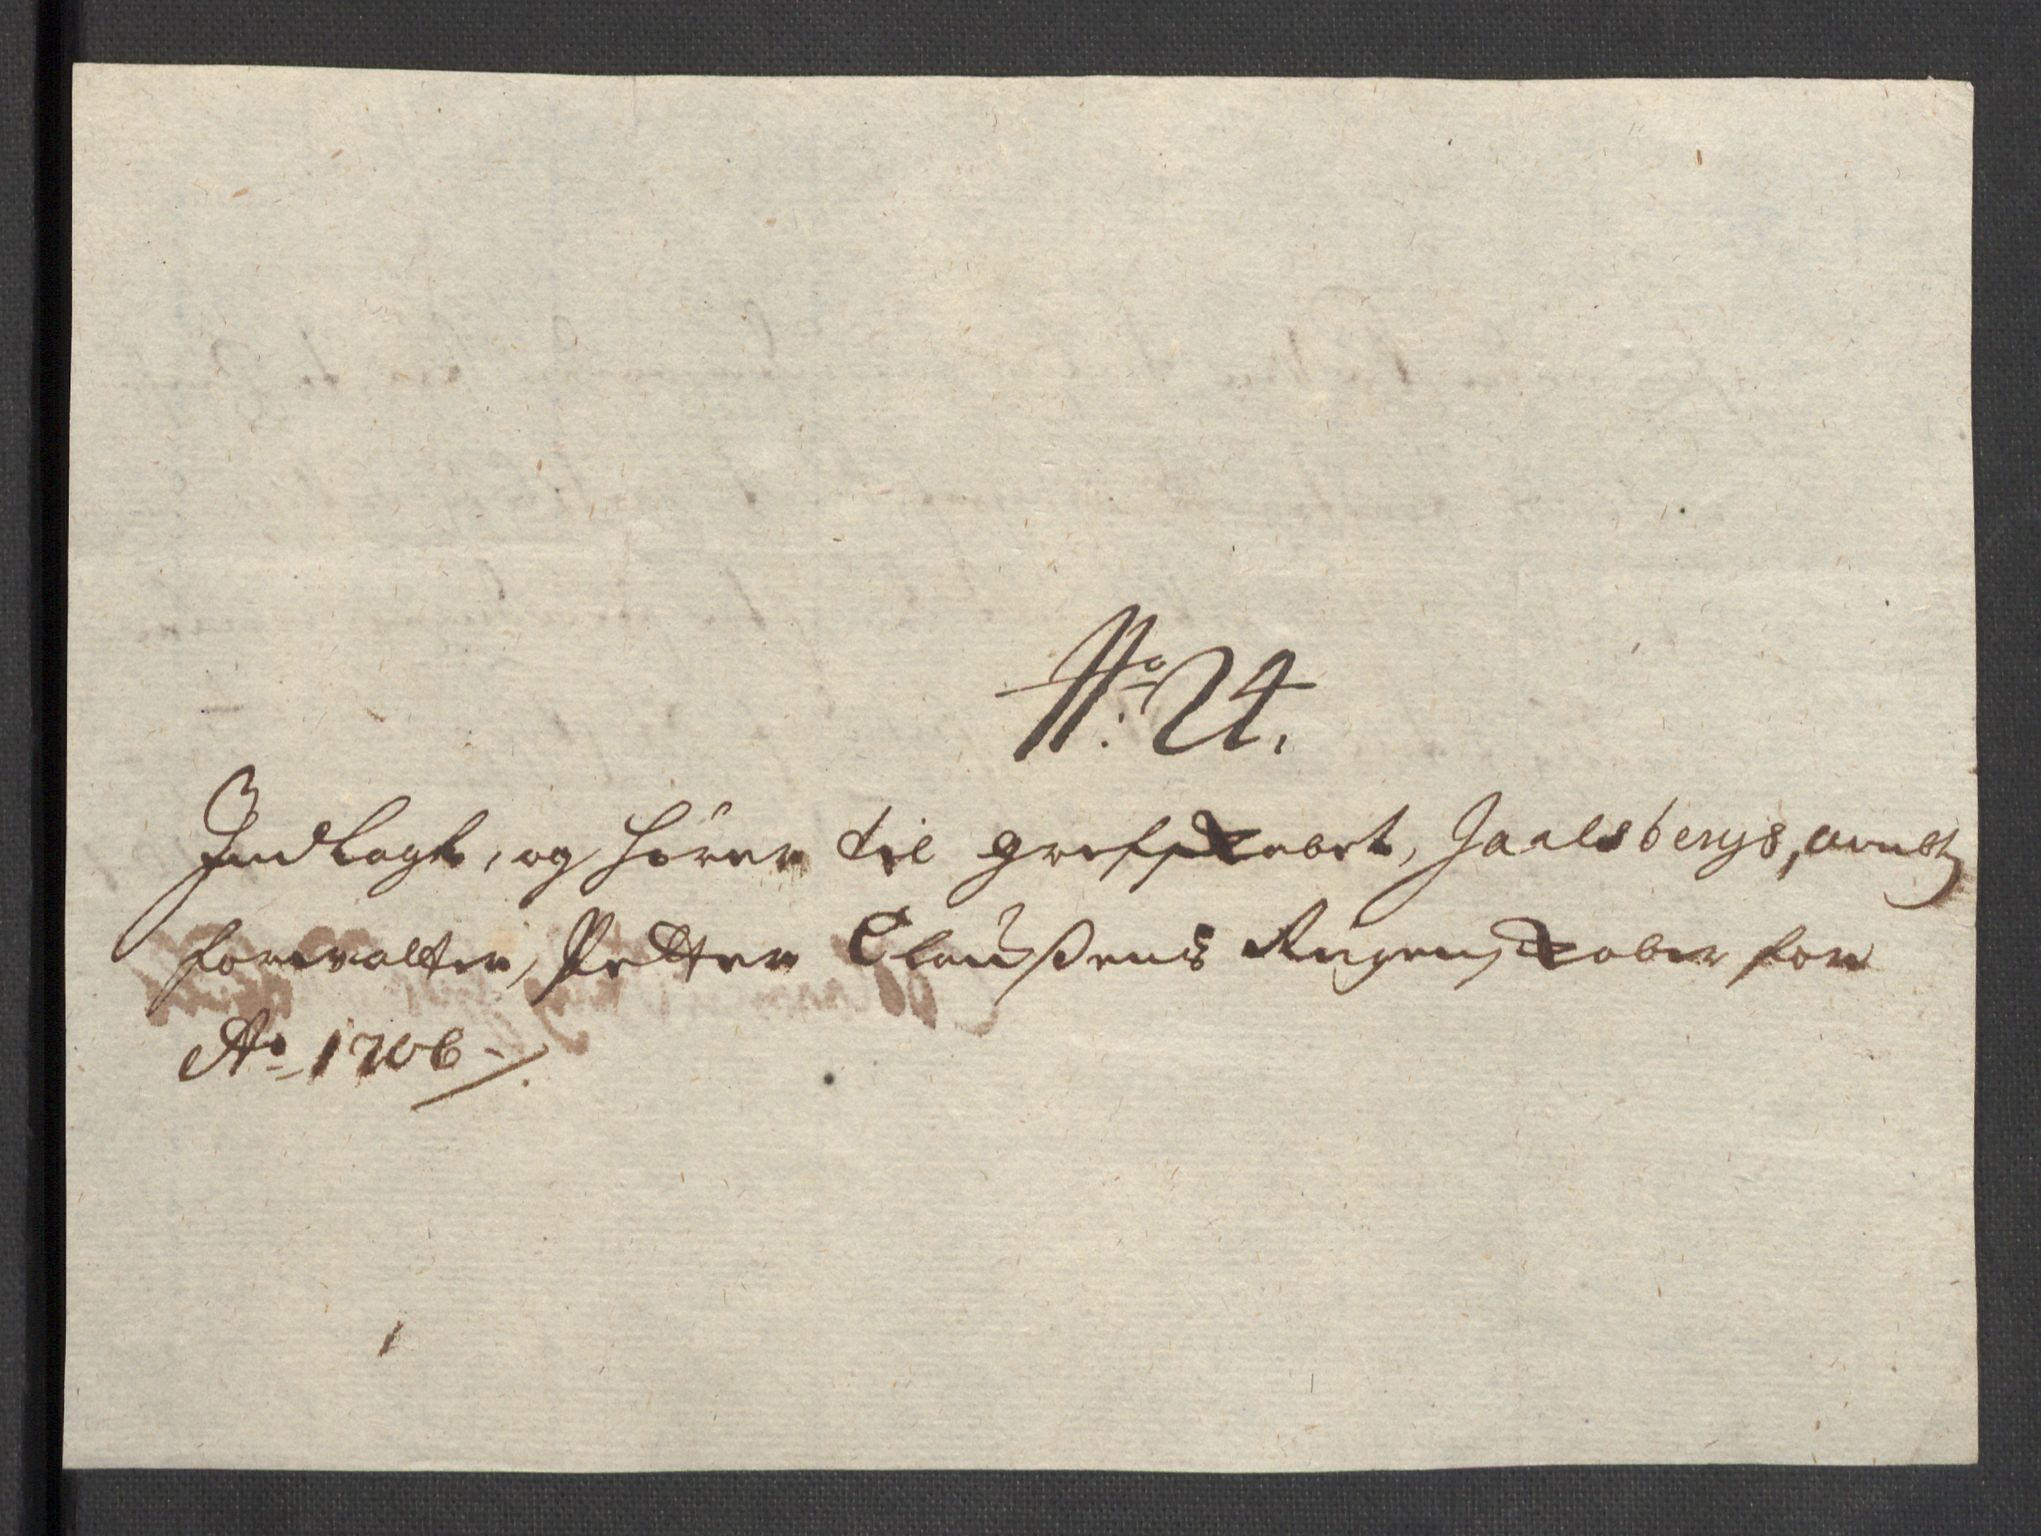 No: 24.
Indlagt, og hörer til grefskabet, Jaalsbergs, ambtz
forvalter, Petter Claußens Regenskaber for
Ao 1706